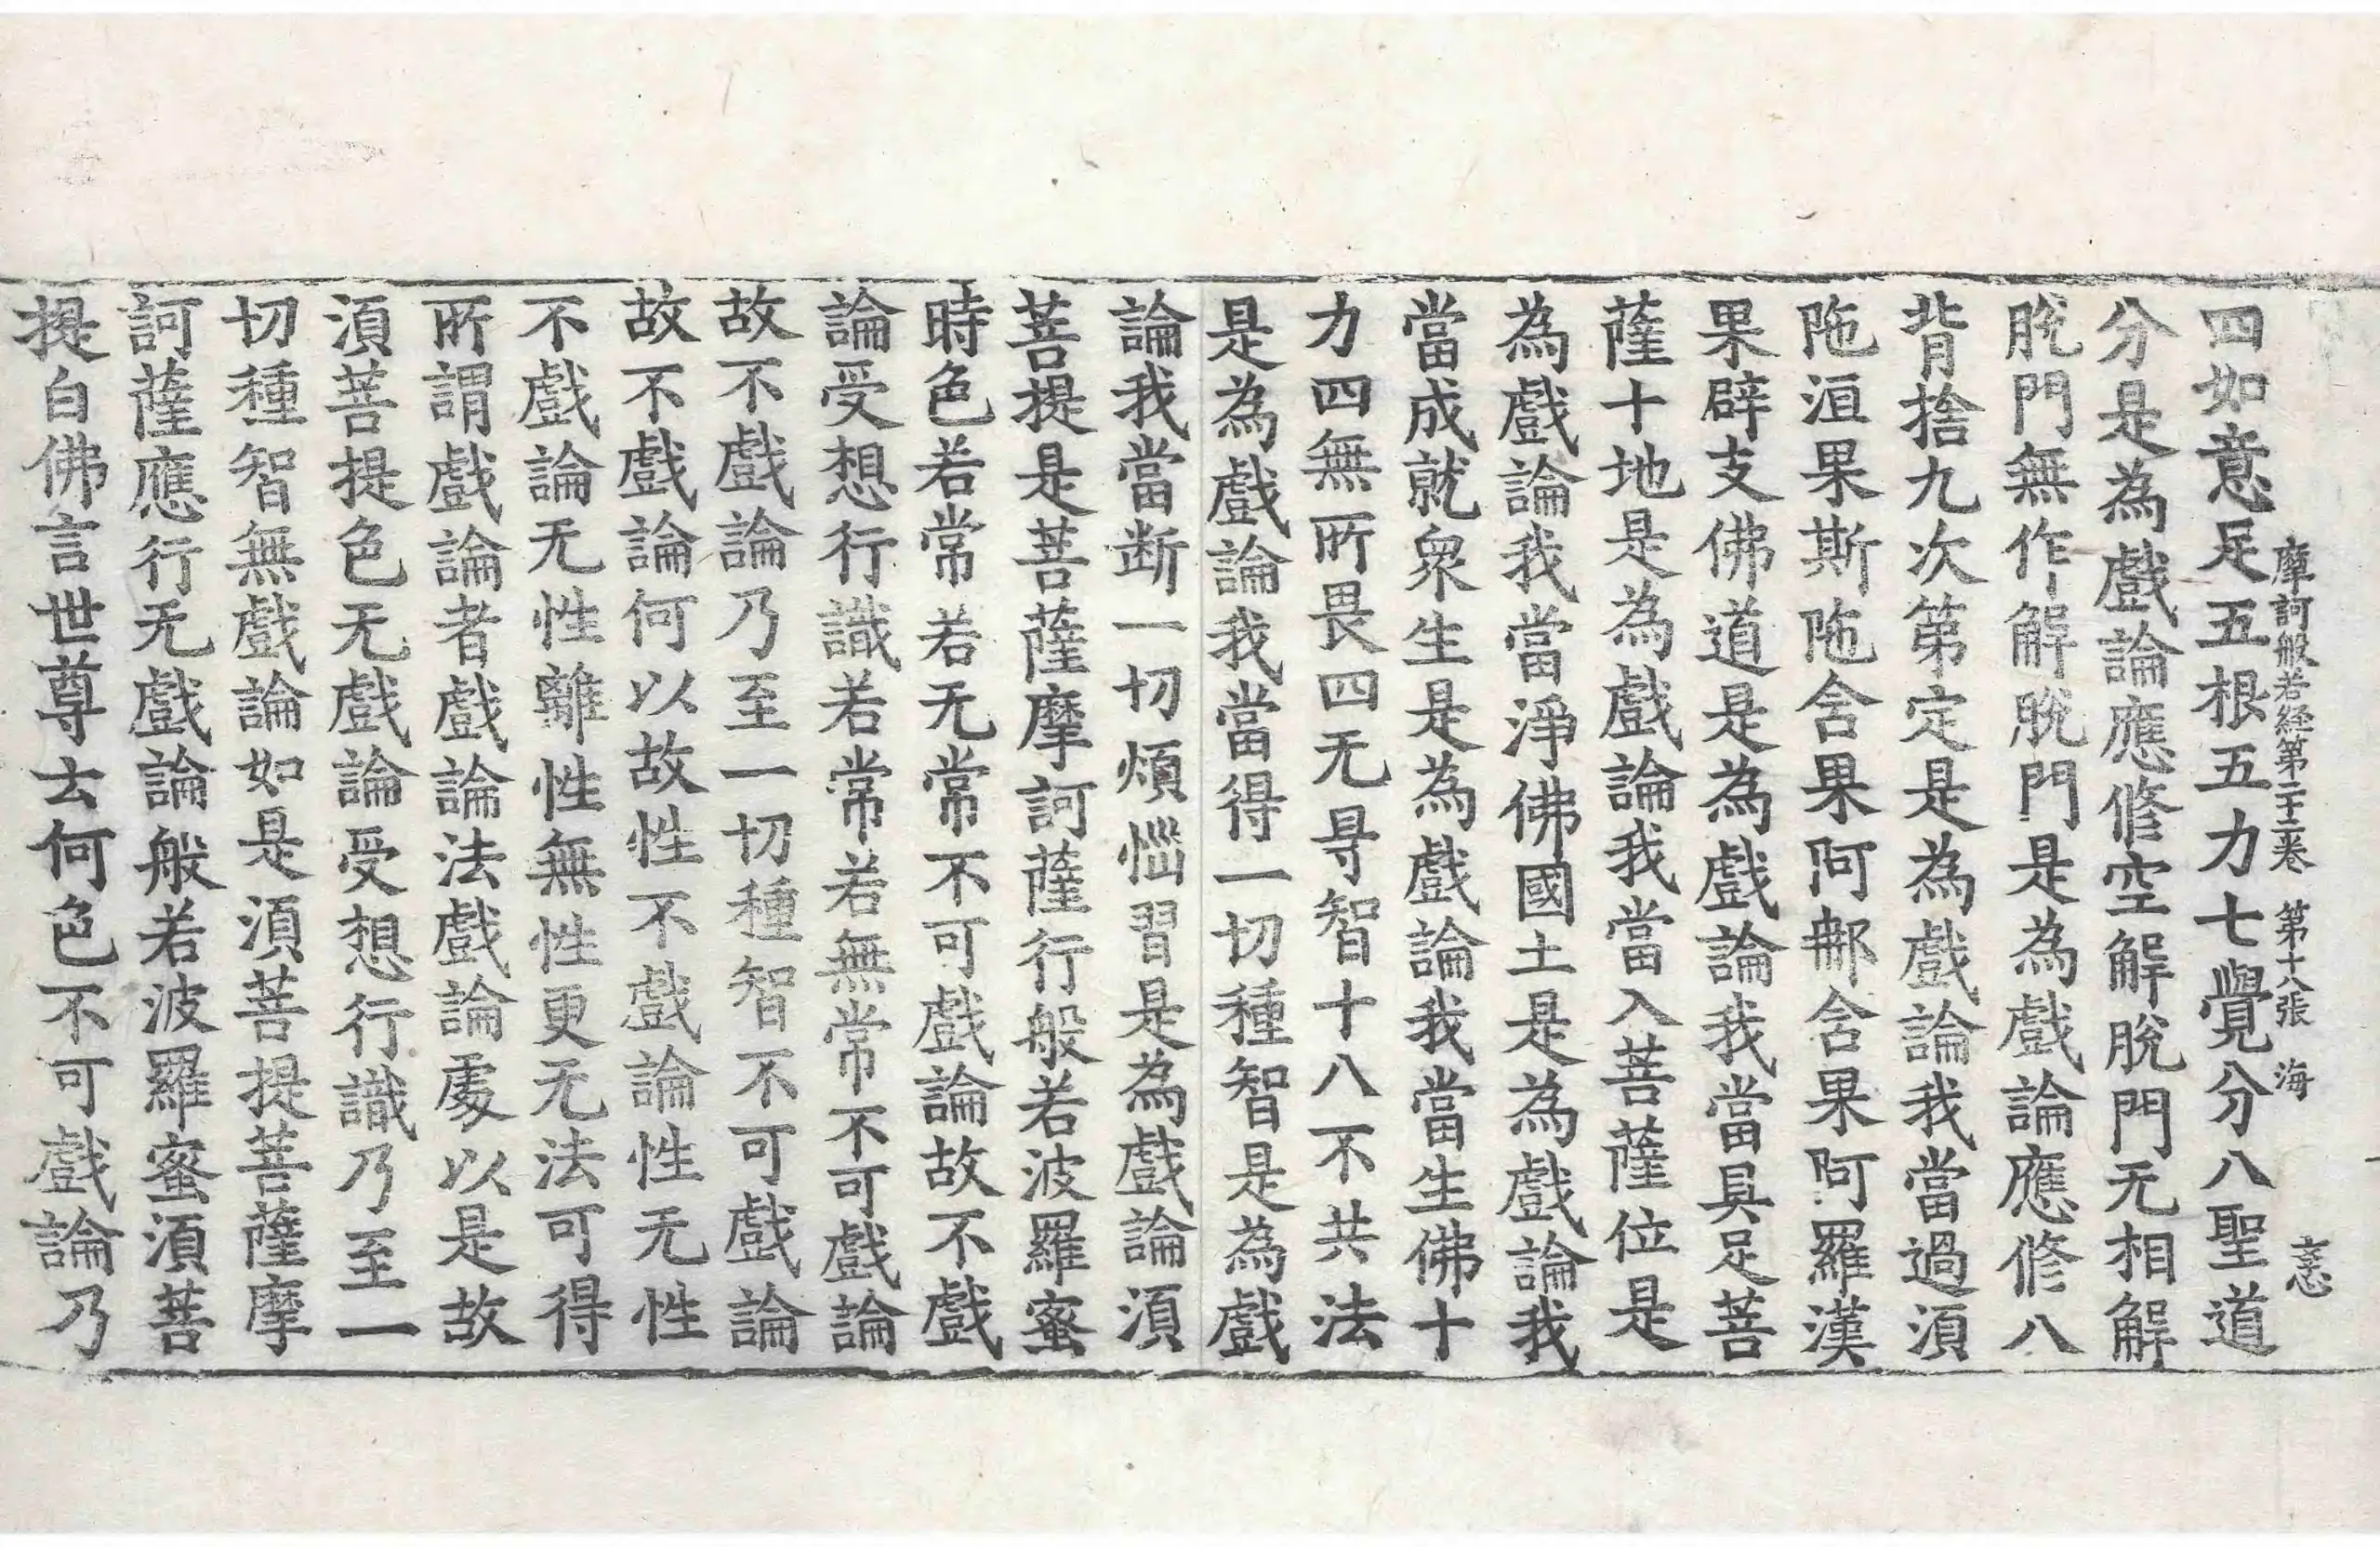 摩訶般若經第二十三卷　第十八張　海
四如意足五根五力七覺分八聖道
分是為戲論應修空解脫門无相解
脫門無作解脫門是為戲論應修八
背捨九次第定是為戲論我當過湏
陁洹果斯陁含果阿那含果阿羅漢
果辟支佛道是為戲論我當具足菩
薩十地是為戲論我當入菩薩位是
為戲論我當淨佛國土是為戲論我
當成就眾生是為戲論我當生佛十
力四無所畏四无㝵智十八不共法
是為戲論我當得一切種智是為戲
論我當断一切煩惱習是為戲論湏
菩提是菩薩摩訶薩行般若波羅蜜
時色若常若无常不可戲論故不戲
論受想行識若常若無常不可戲論
故不戲論乃至一切種智不可戲論
故不戲論何以故性不戲論性无性
不戲論无性離性無性更无法可得
所謂戲論者戲論法戲論處以是故
湏菩提色无戲論受想行識乃至一
切種智無戲論如是湏菩提菩薩摩
訶薩應行无戲論般若波羅蜜湏菩
提白佛言世尊云何色不可戲論乃